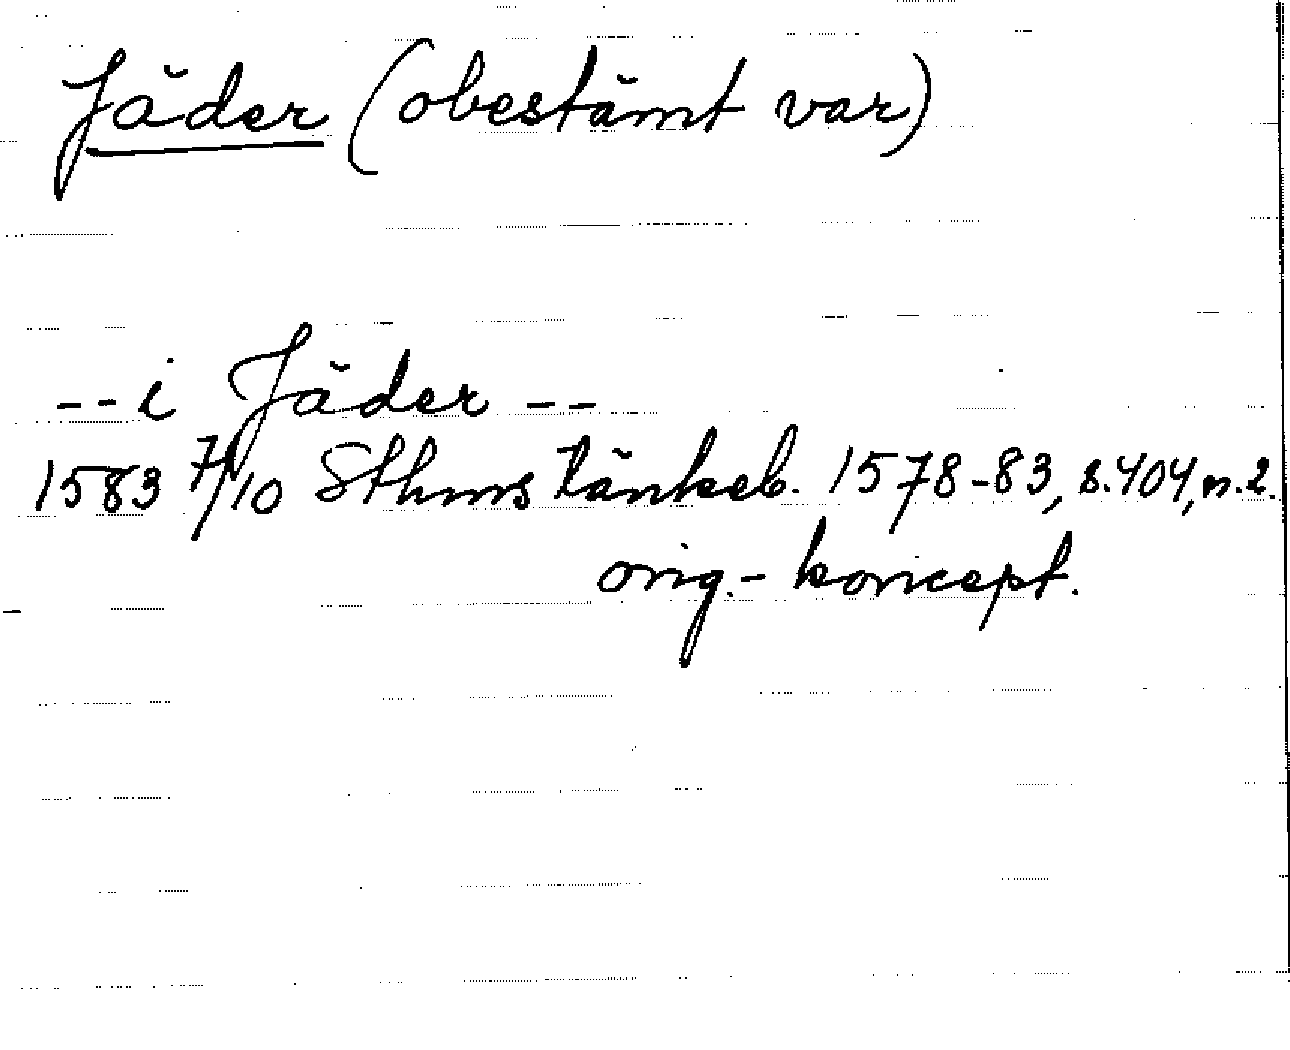 Jäder (obestämt var)
-- i Jäder --
1583 7/10 Sthms tänkeb. 1578-83, s. 404, n. 2.
orig.- koncept.